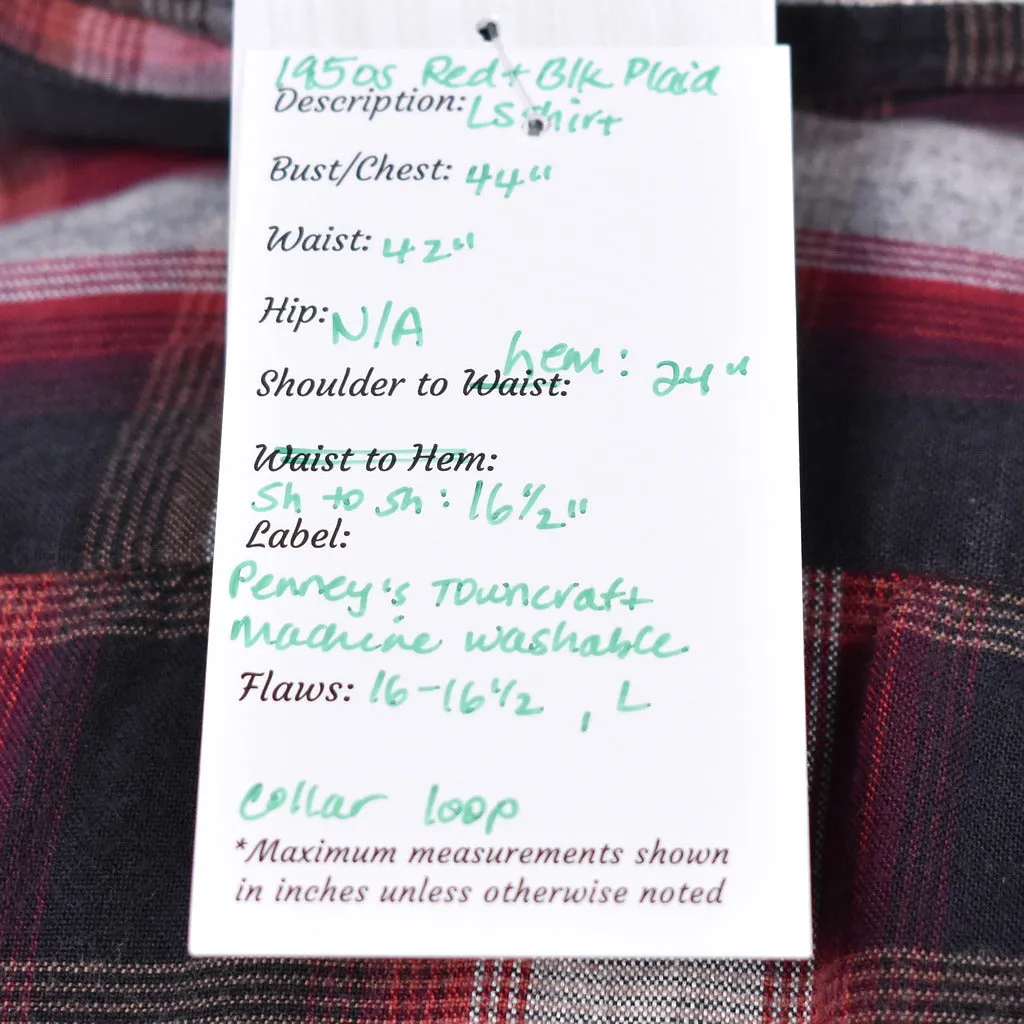 1950s Red + Blk Plaid
Description: LS shirt
Bust/Chest: 44"
Waist: 42"
Hip: N/A
hem: 24"
Shoulder to Waist:
Waist to Hem:
Sh to sh: 16 1/2"
Label:
Penney's Towncraft
Machine washable
Flaws: 16-16 1/2, L
collar loop
*Maximum measurements shown
in inches unless otherwise noted